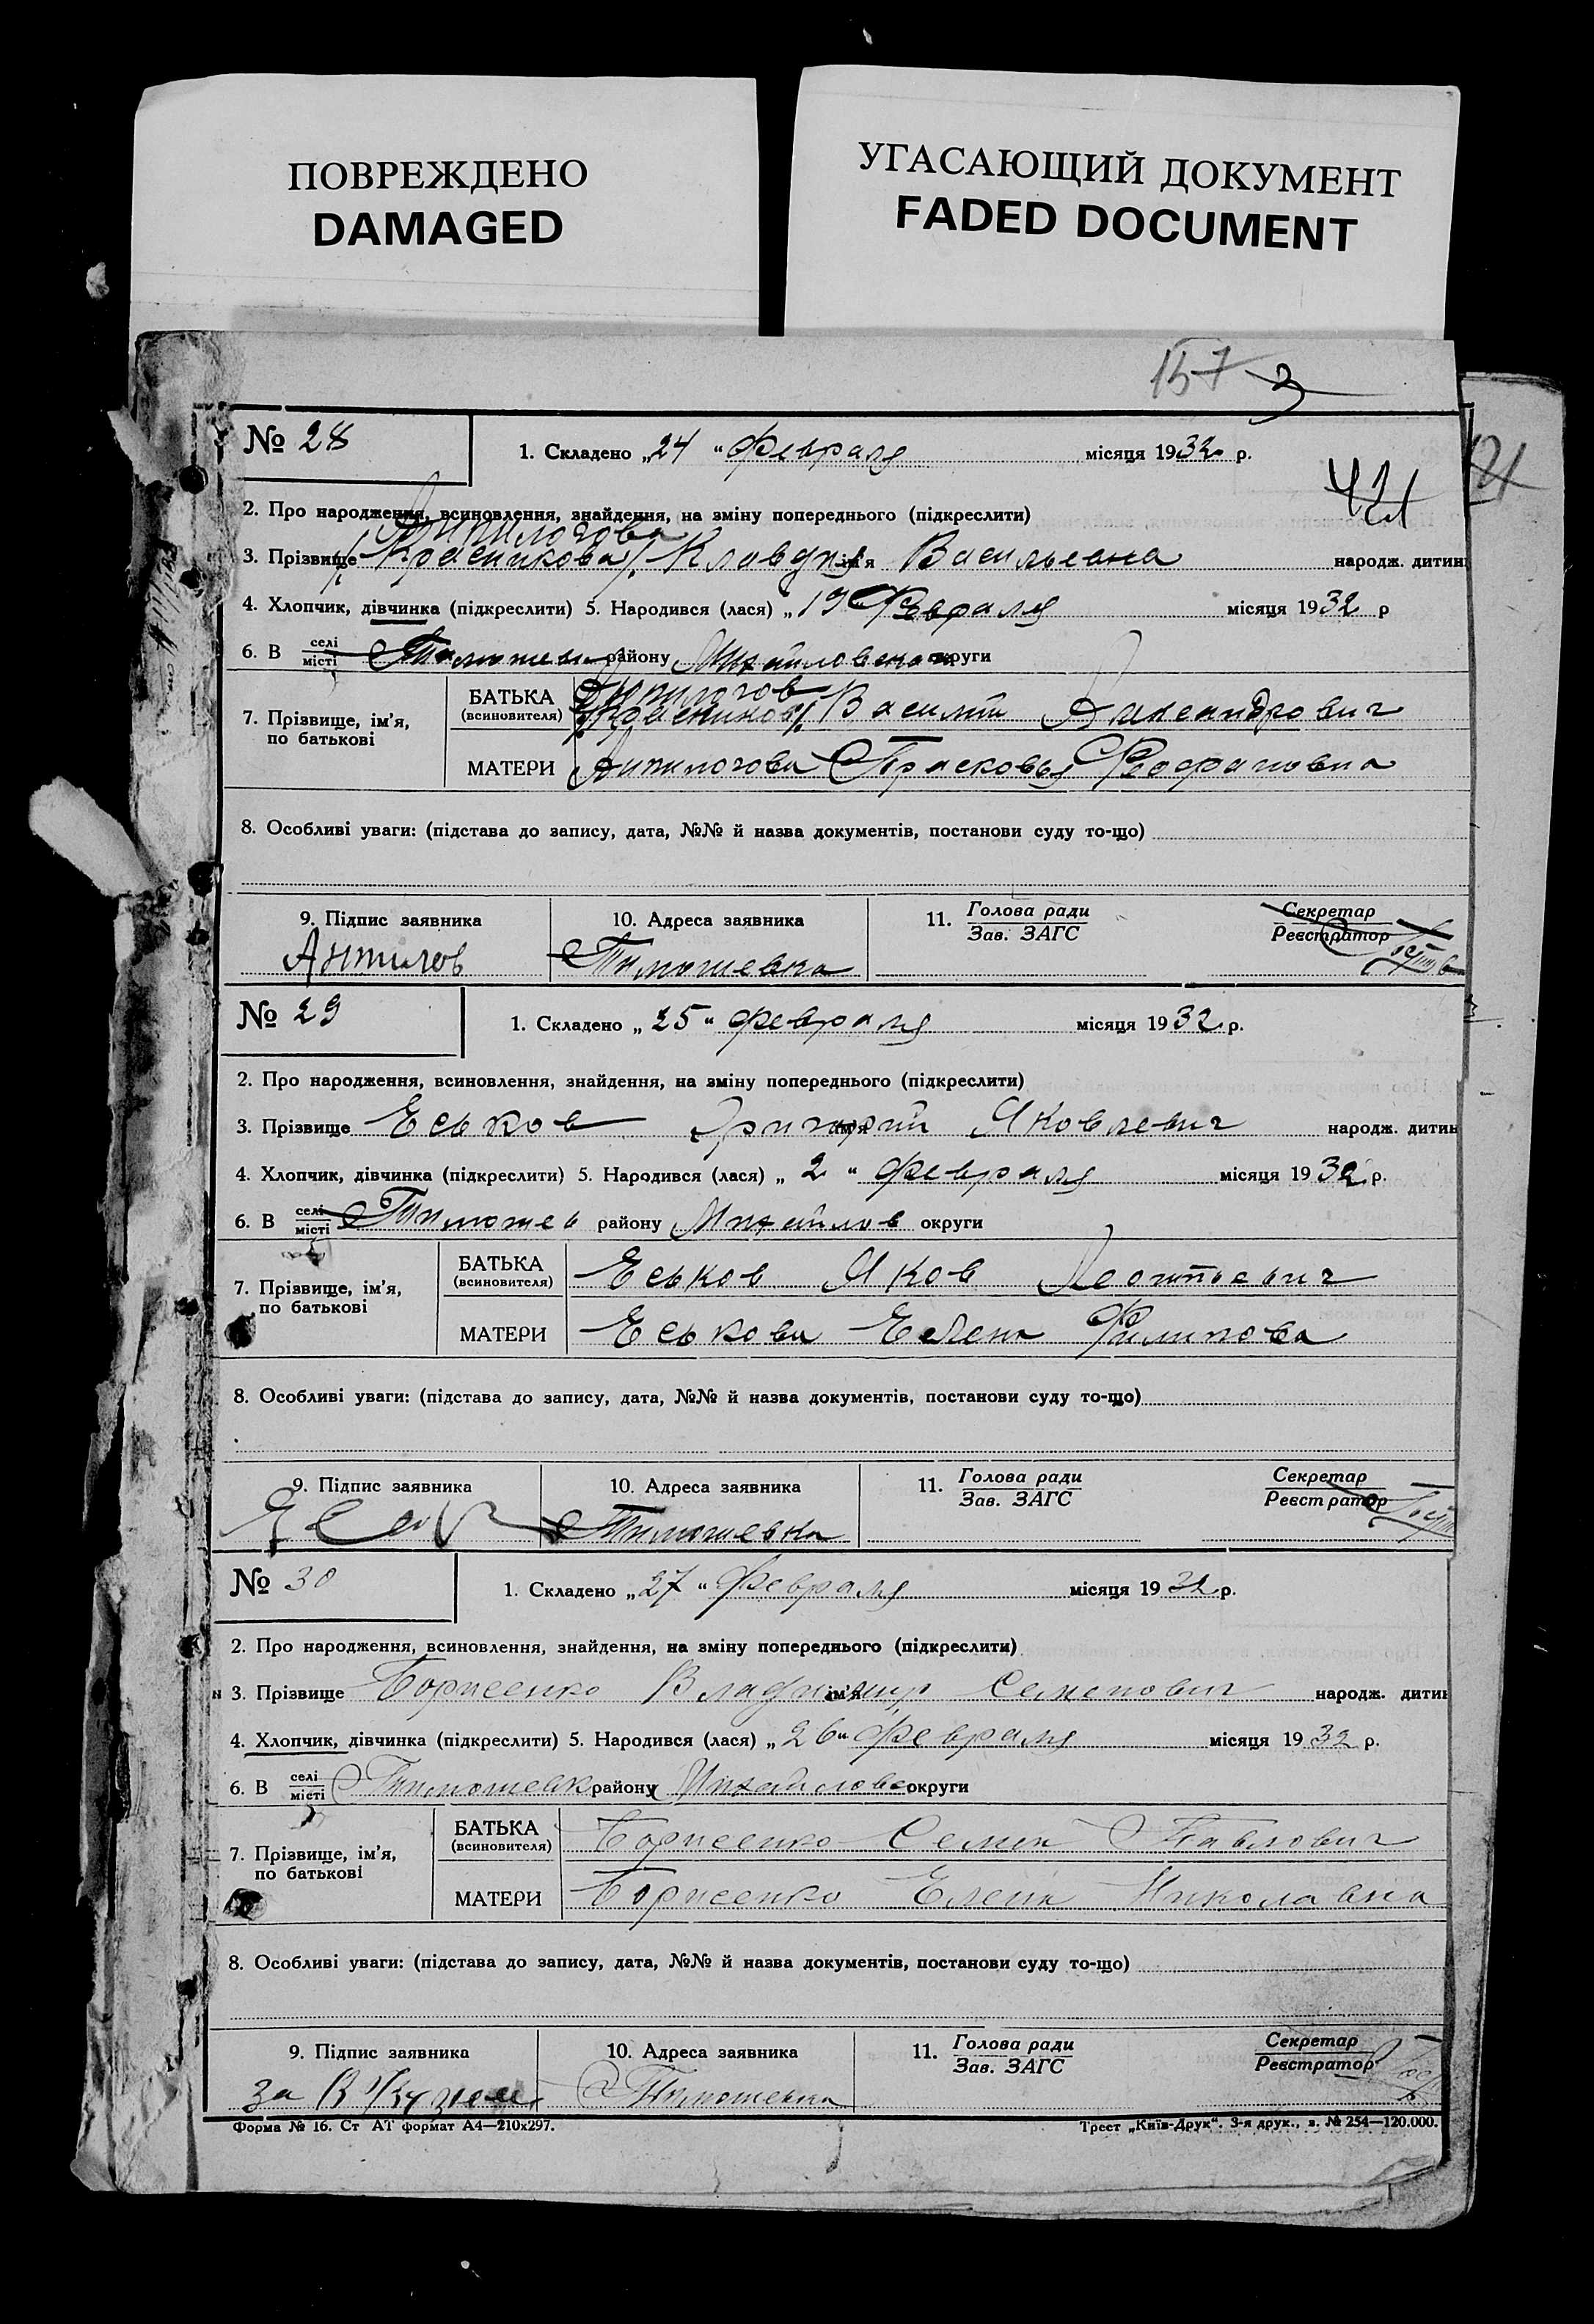 ПОВРЕЖДЕНО
DAMAGED
УГАСАЮЩИЙ ДОКУМЕНТ
FADED DOCUMENT
157
421
№ 28
1. Складено „24“ февраля місяця 1932 р.
2. Про народження, всиновлення, знайдення, на зміну попереднього (підкреслити)
Анпилогова
3. Прізвище /Красникова/ Клавдия ім'я Васильевна народж. дитин
4. Хлопчик, дівчинка (підкреслити) 5. Народився (лася) „19 Февраля місяця 1932 р
6. В селі місті Тимошевк району Михайловска округи
Анпилогов
7. Прізвище, ім'я, по батькові БАТЬКА (всиновителя) /Красников/ Василий Александрович
МАТЕРИ Анпилогова Прасковья Феофановна
8. Особливі уваги: (підстава до запису, дата, №№ й назва документів, постанови суду то-що)
9. Підпис заявника 10. Адреса заявника 11. Голова ради Зав. ЗАГС Секретар Реєстратор
Анпилов Тимошевка
№ 29
1. Складено „25“ февраля місяця 1932 р.
2. Про народження, всиновлення, знайдення, на зміну попереднього (підкреслити)
3. Прізвище Еськов Григорий ім'я Яковлевич народж. дитин
4. Хлопчик, дівчинка (підкреслити) 5. Народився (лася) „2“ февраля місяця 1932 р.
6. В селі місті Тимошев району Михайлов округи
7. Прізвище, ім'я, по батькові БАТЬКА (всиновителя) Еськов Яков Леонтьевич
МАТЕРИ Еськова Елена Филипова
8. Особливі уваги: (підстава до запису, дата, №№ й назва документів, постанови суду то-що)
9. Підпис заявника 10. Адреса заявника 11. Голова ради Зав. ЗАГС Секретар Реєстратор
Тимошевка
№ 30
1. Складено „27“ февраля місяця 1932 р.
2. Про народження, всиновлення, знайдення, на зміну попереднього (підкреслити)
3. Прізвище Борисенко Владимир ім'я Семенович народж. дитин
4. Хлопчик, дівчинка (підкреслити) 5. Народився (лася) „26“ февраля місяця 1932 р.
6. В селі місті Тимошевк району Михайловс округи
7. Прізвище, ім'я, по батькові БАТЬКА (всиновителя) Борисенко Семен Павлович
МАТЕРИ Борисенко Елена Николавна
8. Особливі уваги: (підстава до запису, дата, №№ й назва документів, постанови суду то-що)
9. Підпис заявника 10. Адреса заявника 11. Голова ради Зав. ЗАГС Секретар Реєстратор
за Тимошевка
Форма № 16. Ст АТ формат А4—210х297.
Трест „Київ-Друк“. 3-я друк., з. № 254—120.000.